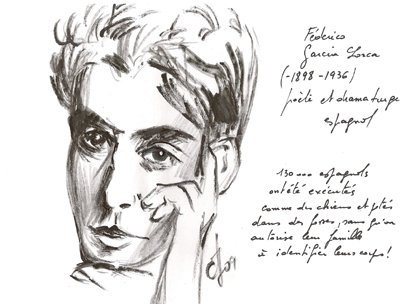 Féderico
Garcia Lorca
(-1898-1936)
poète et dramaturge
espagnol
130000 espagnols
ont été exécutés
comme des chiens et jetés
dans des fosses, sans qu'on
autorise leur famille
à identifier leurs corps!